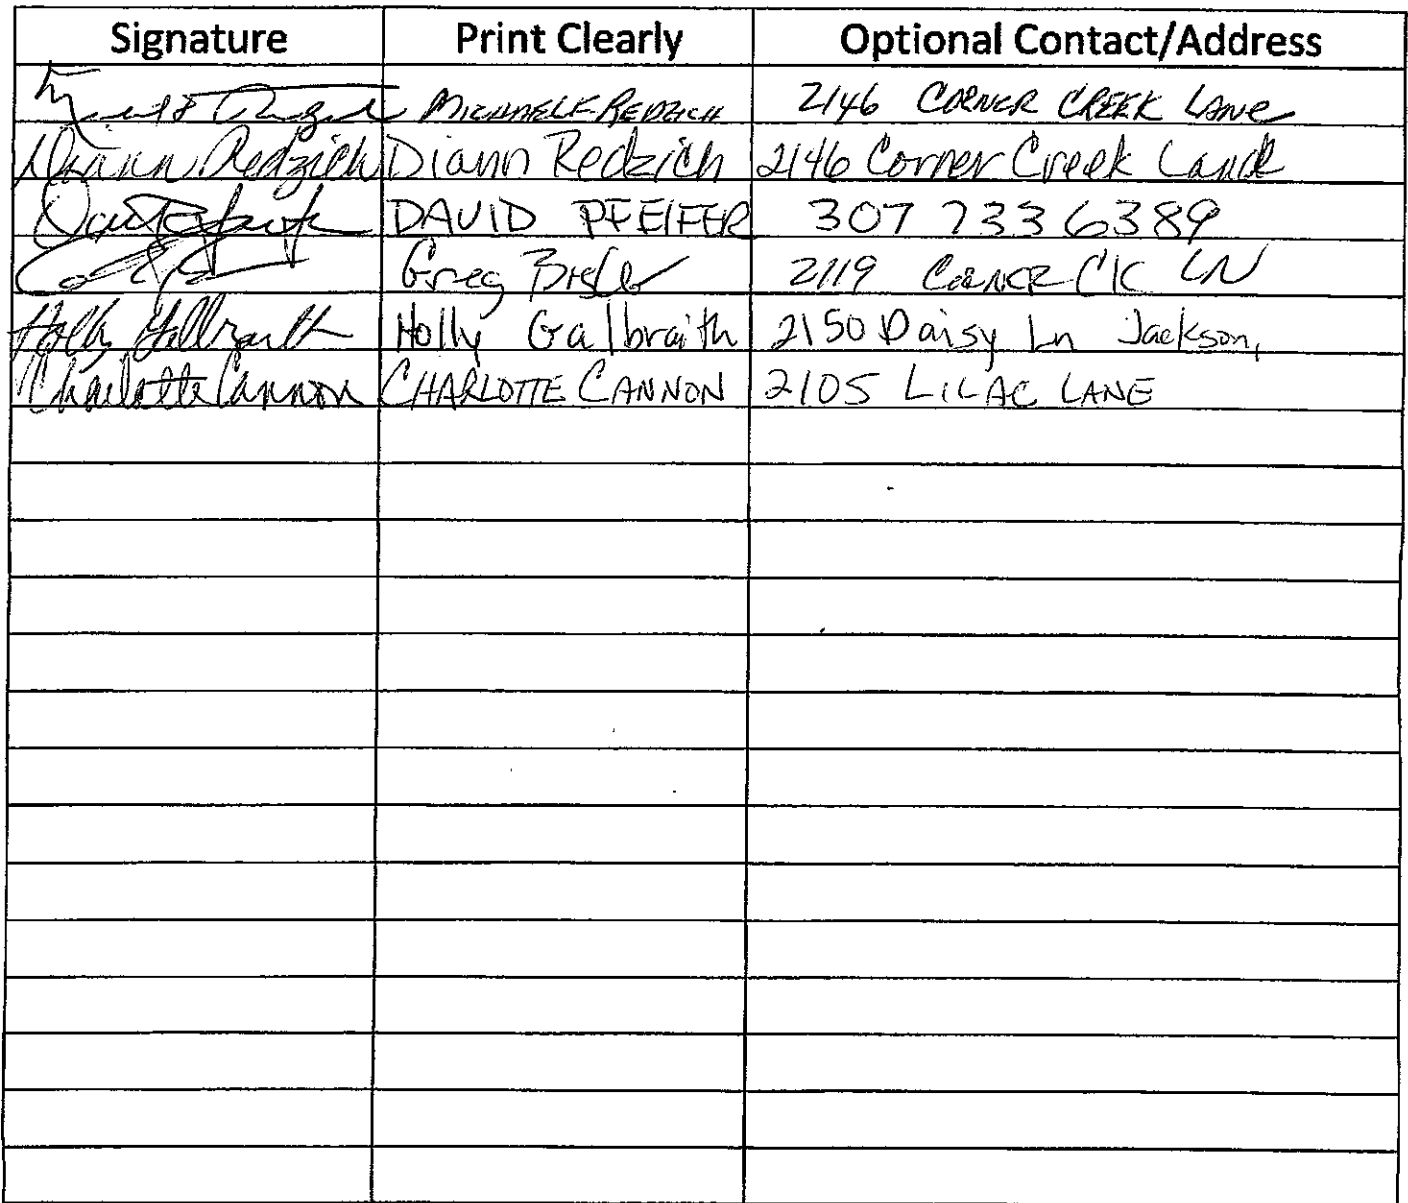 Signature Print Clearly Optional Contact/Address
MICHAEL F. REDZICH 2146 CORNER CREEK LANE
Diann Redzich Diann Redzich 2146 Corner Creek Lane
DAVID PFEIFER 307 733 6389
Greg 2119 CORNER CK LN
Holly Galbraith Holly Galbraith 2150 Daisy Ln Jackson,
Charlotte Cannon CHARLOTTE CANNON 2105 LILAC LANE